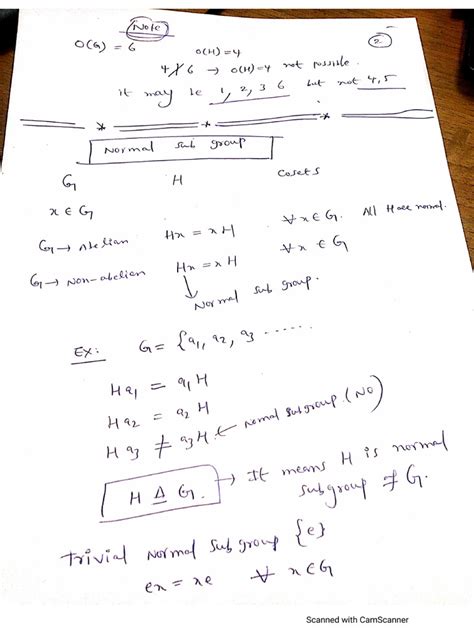 Note
2
O(G) = 6 O(H)=4
4 ∤ 6 → O(H)=4 not possible.
it may be 1, 2, 3 6 but not 4,5
Normal sub group
G H Cosets
x ∈ G
G → Abelian Hx = xH ∀ x ∈ G. All H are normal.
G → Non-abelian Hx = xH ∀ x ∈ G
↓
Normal sub group.
Ex: G = {a1, a2, a3 ......
Ha1 = a1H
Ha2 = a2H
Ha3 ≠ a3H. ← normal subgroup. (NO)
H Δ G. → It means H is normal
subgroup of G.
Trivial Normal sub group {e}
ex = xe ∀ x ∈ G
Scanned with CamScanner